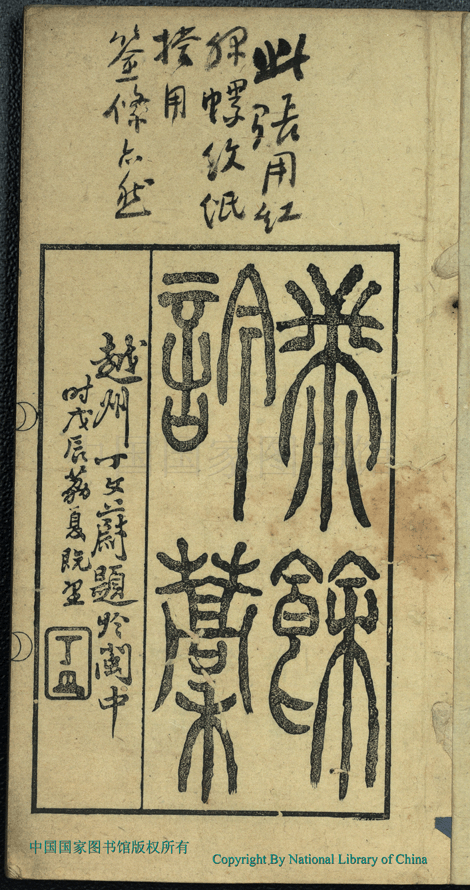 此張用紅
螺紋紙
用
签條亦然
餘
訡藁
越州丁文蔚題於閩中
时戊辰荔夏既望
丁
中国国家图书馆版权所有
Copyright By National Library of China